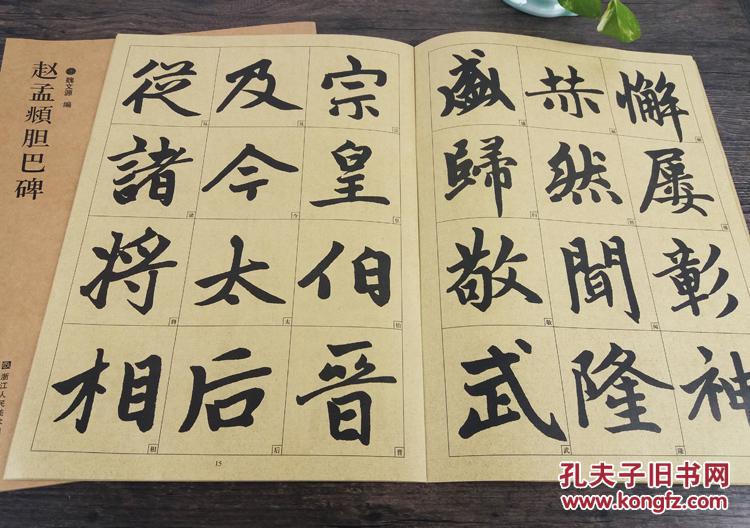 赵孟頫胆巴碑
魏文源 编
浙江人民美术
懈屢彰神
恭然聞隆
盛歸敬武
宗皇伯晋
及今太后
從諸將相
15
孔夫子旧书网
www.kongfz.com